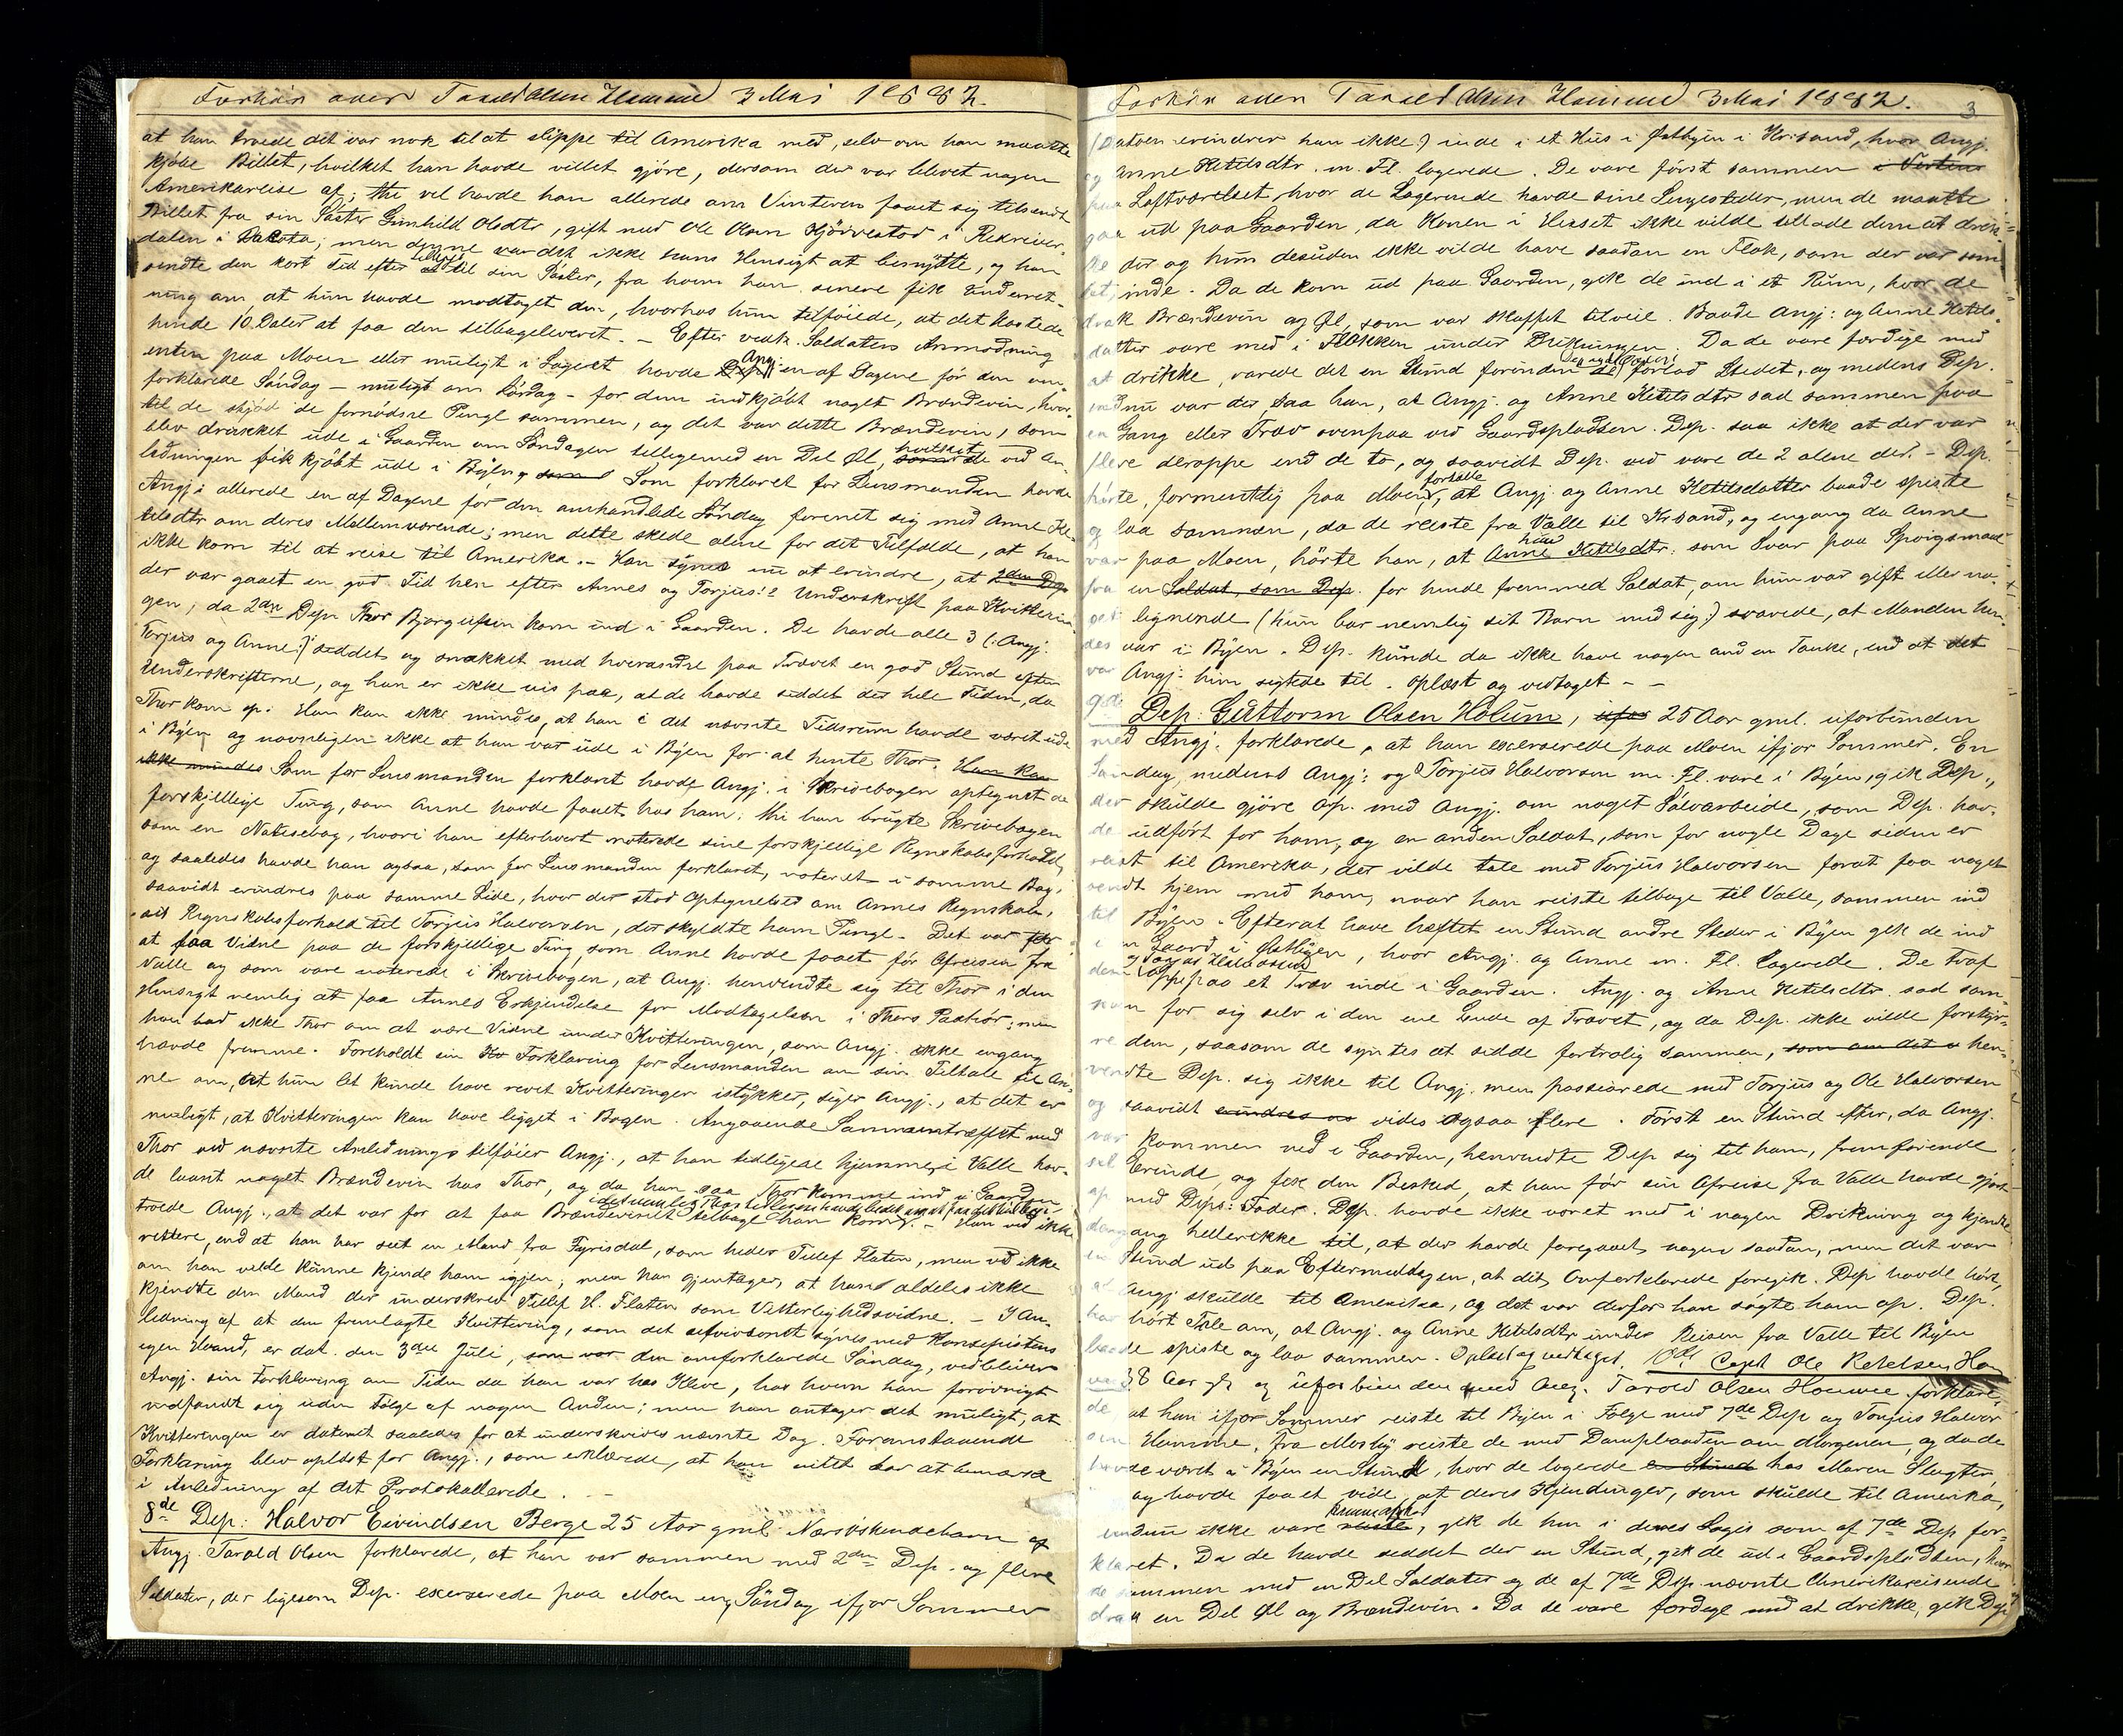 Forhör over Tarald Olsen Homme 3 Mai 1882.
at han troede det var nok til at slippe til Amerika med, selv om han maatte
kjöbe Billet, hvilket han havde villet gjöre, dersom der var blevet nogen
Amerikareise af; thi vel havde han allerede om Vinteren faaet sig tilsendt
Billet fra sin Söster Gunhild Olsdtr, gift med Ole Olsen Kjörvestad i
dalen i Dakota; men denne var det ikke hans Hensigt at benytte, og han
sendte den kort Tid efter til sin Söster, fra hvem han senere fik Underret-
ning om, at hun havde modtaget den, hvorhos hun tilföiede, at det kostede
hende 10 Daler at faa den tilbageleveret. – Efter vedk. Soldaters Anmodning
enten paa Moen eller muligt i Logiet havde Angj. en af Dagene för den om-
forklarede Söndag – muligt om Lördag – for dem indkjöbt noget Brændevin, hvor-
til de skjöd de fornödne Penge sammen, og det var dette Brændevin, som
blev drukket ude i Gaarden om Söndagen tilligemed en Del Öl, hvilket de ved An-
ledningen fik kjöbt ude i Byen, Som forklaret for Lensmanden havde
Angj: allerede en af Dagene för den omhandlede Söndag forenet sig med Anne Ke-
tilsdtr om deres Mellemværende; men dette skede alene for det Tilfælde, at han
ikke kom til at reise til Amerika. – Han synes nu at erindre, at 2den Dep
der var gaaet en god Tid hen efter Annes og Torjus's Underskrift paa Kvitterin-
gen, da 2den Dep Thor Bjorgufsen kom ind i Gaarden. De havde alle 3 (: Angj:
Torjus og Anne:) siddet og snakket med hverandre paa Trævet en god Stund efter
Underskrifterne, og han er ikke vis paa, at de havde siddet der hele Tiden, da
Thor kom op. Han kan ikke mindes, at han i det nævnte Tidsrum havde været ude
i Byen og navnligen ikke at han var ude i Byen for at hente Thor. Han kan
ikke mindes Som for Lensmanden forklaret havde Angj. i Skrivebogen optegnet de
forskjellige Ting, som Anne havde faaet hos ham; thi han brugte Skrivebogen
som en Notisebog, hvori han efterhvert noterede sine forskjellige Regnskabsforhold,
og saaledes havde han ogsaa, som for Lensmanden forklaret, noteret i samme Bog,
saavidt erindres paa samme Side, hvor der stod Optegnelser om Annes Regnskab,
sit Regnskabsforhold til Torjus Halvorsen, der skyldte ham Penge. Det var for
at faa Vidne paa de forskjellige Ting, som Anne havde faaet för Afreisen fra
Valle og som vare noterede i Skrivebogen, at Angj. henvendte sig til Thor i den
Hensigt nemlig at faa Annes Erkjendelse for Modtagelsen i Thors Paahör; men
han bad ikke Thor om at være Vidne under Kvitteringen, som Angj. ikke engang
havde fremme. Foreholdt sin Forklaring for Lensmanden om sin Tiltale til An-
ne om, at hun let kunde have revet Kvitteringen istykker, siger Angj., at det er
muligt, at Kvitteringen kan have ligget i Bogen. Angaaende Sammentræffet med
Thor ved nævnte Anledning tilföier Angj., at han tidligere hjemme i Valle hav-
de laant noget Brændevin hos Thor, og da han saa Thor komme ind i Gaarden
troede Angj., at det var for at faa Brændevinet tilbage han kom, – Han ved ikke
rettere, end at han har seet en Mand fra Fyrisdal, som heder Tellef Flaten, men ved ikke
om han vilde kunne kjende ham igjen; men han gjentager, at han aldeles ikke
kjendte den Mand der underskrev Tellef H. Flaten som Vitterlighedsvidne. – I An-
ledning af at den fremlagte Kvittering, som det synes med Koncipistens
egen Haand, er dat. den 3die Juli, som var den omforklarede Söndag, vedbliver
Angj. sin Forklaring om Tiden da han var hos Kleve, hos hvem han forövrigt
indfandt sig uden Fölge af nogen Anden; men han antager det muligt, at
Kvitteringen er dateret saaledes for at underskrives nævnte Dag. Foranstaaende
Forklaring blev oplæst for Angj., som erklærede, at han intet har at bemærke
i Anledning af det Protokollerede. –
8de Dep: Halvor Eivindsen Berge 25 Aar gml. Næstsöskendebarn af
Angj. Tarald Olsen forklarede, at han var sammen med 2den Dep. og flere
Soldater, der ligesom Dep. exerserede paa Moen en Söndag ifjor Sommer
Forhör over Tarald Olsen Homme 3 Mai 1882. 3
(Datoen erindrer han ikke) inde i et Hus i Östbyen i Krsand, hvor Angj.
og Anne Ketilsdtr. m. Fl. logerede. De vare först sammen i Vertens
paa Loftværelset, hvor de Logerende havde sine Sengesteder, men de maatte
gaa ud paa Gaarden, da Konen i Huset ikke vilde tillade dem at drik-
ke der og hun desuden ikke vilde have saadan en Flok, som der var sam-
let, inde. Da de kom ud paa Gaarden, gik de ind i et Rum, hvor de
drak Brændevin og Öl, som var skaffet tilveie. Baade Angj: og Anne Ketils-
datter vare med i Flokken under Drikningen. Da de vare færdige med
at drikke, varede det en Stund forinden de forlod Stedet, og medens Dep.
endnu var der, saa han, at Angj. og Anne Ketilsdtr sad sammen paa
en Gang eller Træv ovenpaa ved Gaardspladsen. Dep. saa ikke at der var
flere deroppe end de to, og saavidt Dep. ved vare de 2 alene der. – Dep.
hörte, formentlig paa Moen, fortælle at Angj. og Anne Ketilsdatter baade spiste
og laa sammen, da de reiste fra Valle til Krsand, og engang da Anne
var paa Moen, hörte han, at hun Anne Ketilsdtr: som Svar paa Spörgsmaal
fra en Soldat, som Dep. for hende fremmed Soldat, om hun var gift eller no-
get lignende (hun bar nemlig sit Barn med sig:) svarede, at Manden hen-
des var i Byen. Dep. kunde da ikke have nogen anden Tanke, end at det
var Angj: hun sigtede til. Oplæst og vedtaget – –
9de Dep: Guttorm Olsen Holum, ufor 25 Aar gml. uforbunden
med Angj. forklarede, at han exerserede paa Moen ifjor Sommer. En
Söndag, medens Angj: og Torjus Halvorsen m. Fl. vare i Byen, gik Dep.,
der skulde gjöre op med Angj. om noget Sölvarbeide, som Dep. hav-
de udfört for ham, og en anden Soldat, som for nogle Dage siden er
reist til Amerika, der vilde tale med Torjus Halvorsen forat faa noget
sendt hjem med ham, naar han reiste tilbage til Valle, sammen ind
til Byen. Efterat have hæftet en Stund andre Steder i Byen gik de ind
i en Gaard i Östbyen, hvor Angj. og Anne m. Fl. logerede. De traf
dem oppe paa et Træv inde i Gaarden. Angj. og Anne Ketilsdtr. sad sam-
men for sig selv i den ene Ende af Trævet, og da Dep. ikke vilde forstyr-
re dem, saasom de syntes at sidde fortrolig sammen, som om det hen-
vendte Dep. sig ikke til Angj. men passiarede med Torjus og Ole Halvorsen
og saavidt erindres vides ogsaa flere. Först en Stund efter, da Angj.
var kommen ned i Gaarden, henvendte Dep sig til ham, fremförende
sit Erinde, og fik den Besked, at han för sin Afreise fra Valle havde gjort
op med Deps: Fader. Dep. havde ikke været med i nogen Drikning og kjendte
dengang hellerikke til, at der havde foregaaet nogen saadan, men det var
en Stund ud paa Eftermiddagen, at det Omforklarede foregik. Dep havde hört,
at Angj skulde til Amerika, og det var derfor han sögte ham op. Dep.
har hört Tale om, at Angj. og Anne Ketilsdtr under Reisen fra Valle til Byen
baade spiste og laa sammen. Oplæst og vedtaget. 10de Dep Ole Ketelsen Hom
38 Aar gl. og uforbunden med Ang. Tarald Olsen Homme forklare-
de, at han ifjor Sommer reiste til Byen i Fölge med 7de Dep og Torjus Halvor
sen Homme, fra Mosby reiste de med Dampbaaden om Morgenen, og da de
havde været i Byen en Stund, hvor de logerede en Stund hos Maren Slagter,
og havde faaet vide, at deres Kjendinger, som skulde til Amerika,
endnu ikke vare reiste, gik de hen i deres Logis som af 7de Dep for-
klaret. Da de havde siddet der en Stund, gik de ud i Gaardspladsen, hvor
de sammen med en Del Soldater og de af 7de Dep nævnte Amerikareisende
drak en Del Öl og Brændevin. Da de vare færdige med at drikke, gik Dep